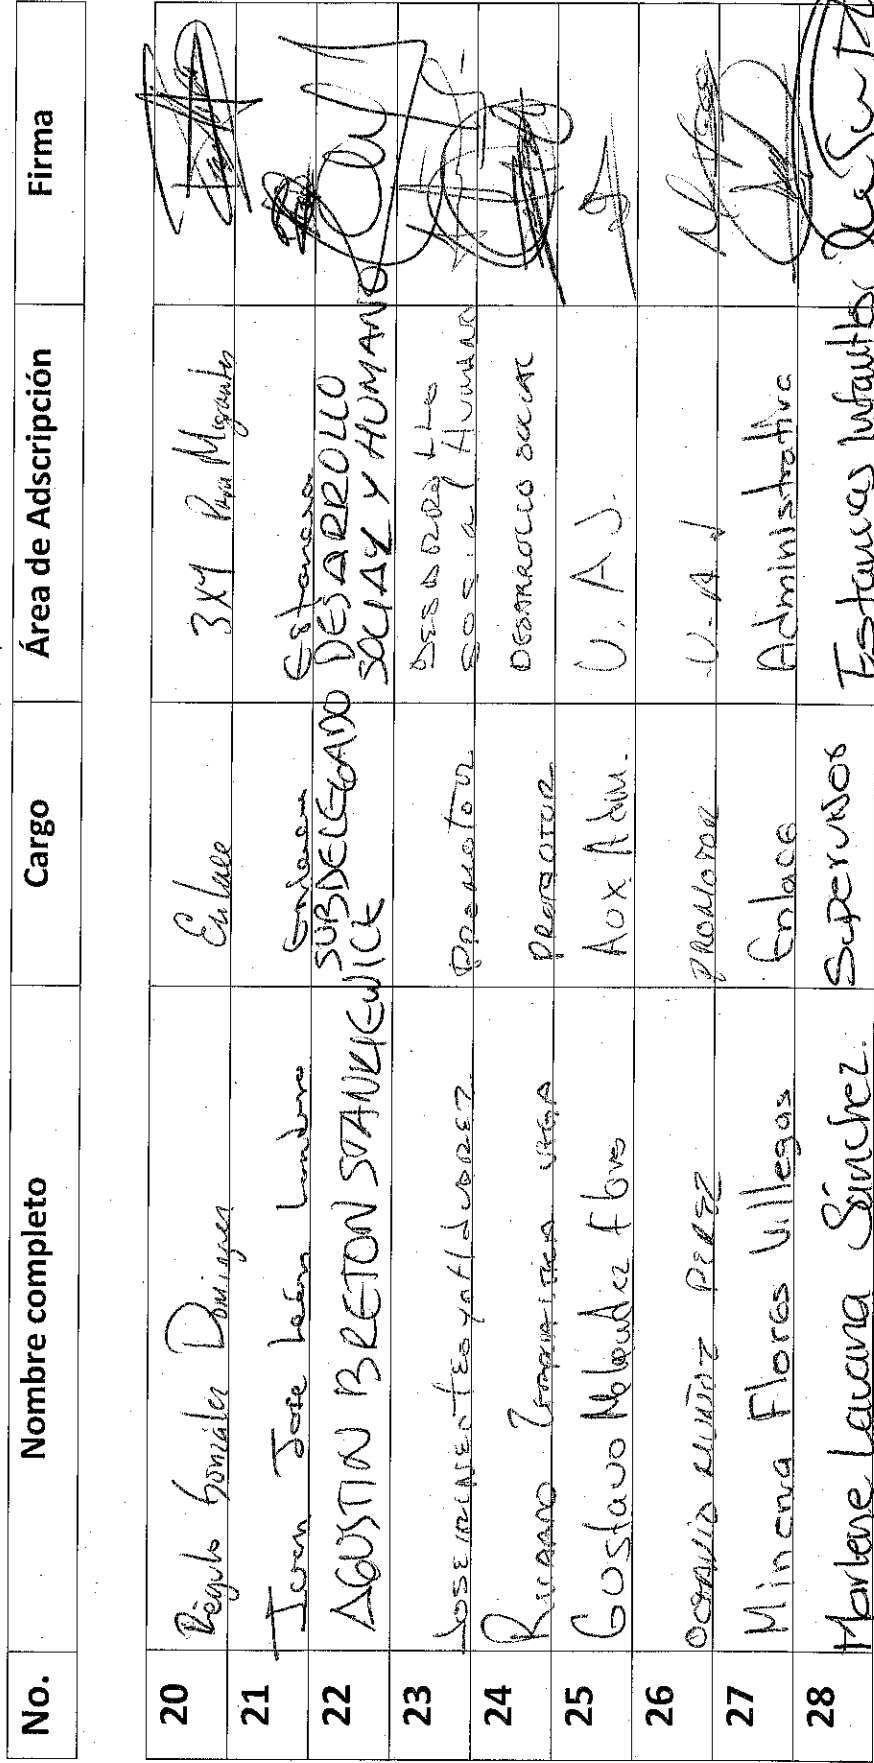 No. Nombre completo Cargo Área de Adscripción Firma
20 Régulo González Domínguez Enlace 3X1 Para Migrantes
21 Juan José León Landero Enlace Estancia
22 AGUSTIN BRETON STANKIEWICK SUBDELEGADO DESARROLLO SOCIAL Y HUMANO
23 Promotor DESARROLLO social y Humano
24 RICARDO VEGA PROMOTOR DESARROLLO SOCIAL
25 Gustavo Flores Aux Adm. U. A J.
26 OCTAVIO MUÑOZ PEREZ PROMOTOR U. A J
27 Minerva Flores Villegas Enlace Administrativa
28 Marlene Lavana Sánchez. Supervisor Estancias Infantiles